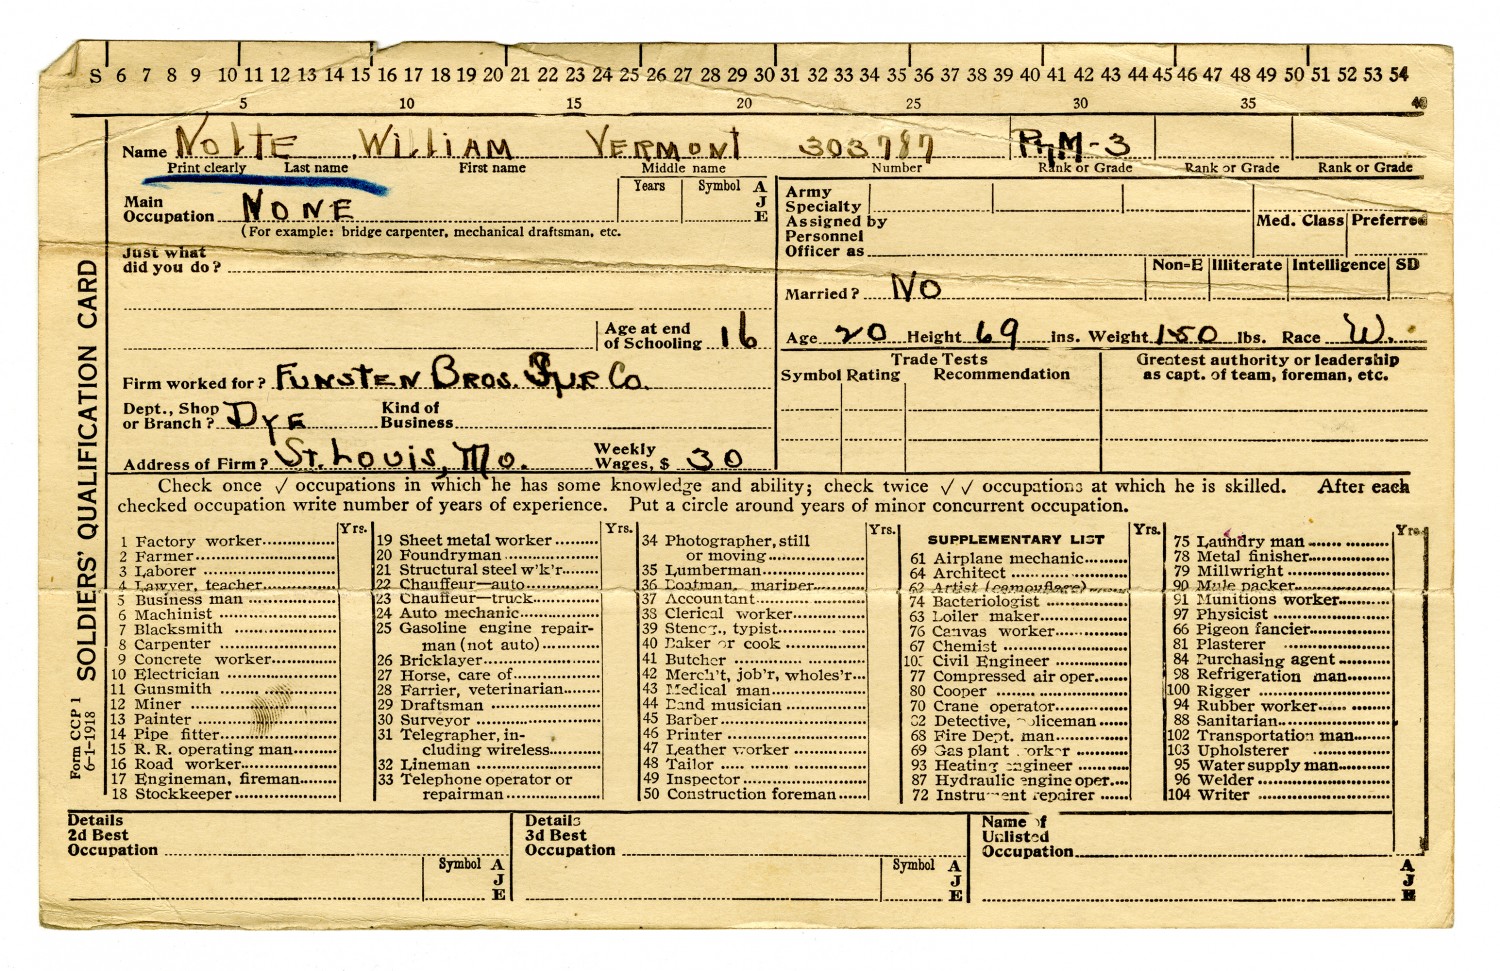 S 6 7 8 9 10 11 12 13 14 15 16 17 18 19 20 21 22 23 24 25 26 27 28 29 30 31 32 33 34 35 36 37 38 39 40 41 42 43 44 45 46 47 48 49 50 51 52 53 54
5 10 15 20 25 30 35 40
Name NOLTE WILLIAM VERMONT 303787 PhM-3
Print clearly Last name First name Middle name Number Rank or Grade Rank or Grade Rank or Grade
Years Symbol A J E
Main Occupation NONE
(For example: bridge carpenter, mechanical draftsman, etc.
Just what did you do?
Age at end of Schooling 16
Firm worked for? FUNSTEN BROS. FUR Co.
Dept., Shop or Branch? DYE Kind of Business
Address of Firm? ST. LOUIS, MO. Weekly Wages, $ 30
Army Specialty Assigned by Personnel Officer as
Med. Class Preferred
Non-E Illiterate Intelligence SD
Married? NO
Age 20 Height 69 ins. Weight 150 lbs. Race W.
Trade Tests
Symbol Rating Recommendation
Greatest authority or leadership
as capt. of team, foreman, etc.
SOLDIERS' QUALIFICATION CARD
Form CCP 1
6-1-1918
Check once √ occupations in which he has some knowledge and ability; check twice √ √ occupations at which he is skilled. After each
checked occupation write number of years of experience. Put a circle around years of minor concurrent occupation.
Yrs.
1 Factory worker
2 Farmer
3 Laborer
4 Lawyer, teacher
5 Business man
6 Machinist
7 Blacksmith
8 Carpenter
9 Concrete worker
10 Electrician
11 Gunsmith
12 Miner
13 Painter
14 Pipe fitter
15 R. R. operating man
16 Road worker
17 Engineman, fireman
18 Stockkeeper
Yrs.
19 Sheet metal worker
20 Foundryman
21 Structural steel w'k'r
22 Chauffeur—auto
23 Chauffeur—truck
24 Auto mechanic
25 Gasoline engine repair-
man (not auto)
26 Bricklayer
27 Horse, care of
28 Farrier, veterinarian
29 Draftsman
30 Surveyor
31 Telegrapher, in-
cluding wireless
32 Lineman
33 Telephone operator or
repairman
Yrs.
34 Photographer, still
or moving
35 Lumberman
36 Boatman, mariner
37 Accountant
38 Clerical worker
39 Stenog., typist
40 Baker or cook
41 Butcher
42 Merch't, job'r, wholes'r
43 Medical man
44 Band musician
45 Barber
46 Printer
47 Leather worker
48 Tailor
49 Inspector
50 Construction foreman
Yrs.
SUPPLEMENTARY LIST
61 Airplane mechanic
64 Architect
62 Artist (camouflage)
74 Bacteriologist
63 Boiler maker
76 Canvas worker
67 Chemist
Civil Engineer
77 Compressed air oper.
80 Cooper
70 Crane operator
Detective, policeman
68 Fire Dept. man
69 Gas plant worker
93 Heating engineer
87 Hydraulic engine oper.
72 Instrument repairer
Yrs.
75 Laundry man
78 Metal finisher
79 Millwright
90 Mule packer
91 Munitions worker
97 Physicist
66 Pigeon fancier
81 Plasterer
84 Purchasing agent
98 Refrigeration man
100 Rigger
94 Rubber worker
88 Sanitarian
102 Transportation man
103 Upholsterer
95 Water supply man
96 Welder
104 Writer
Details 2d Best Occupation
Symbol A J E
Details 3d Best Occupation
Symbol A J E
Name of Unlisted Occupation
A J E